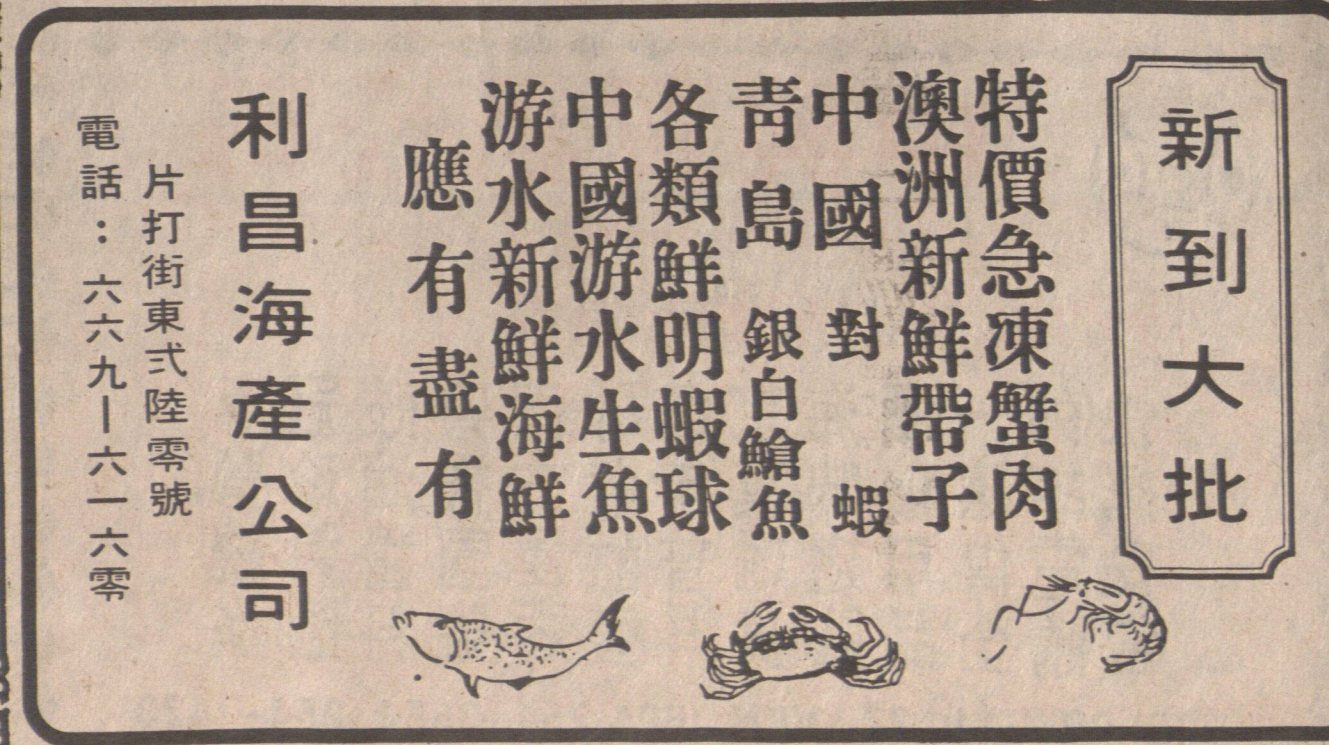 新到大批
特價急凍蟹肉
澳洲新鮮帶子
中國對蝦
靑島銀白鱠魚
各類鮮明蝦球
中國游水生魚
游水新鮮海鮮
應有盡有
利昌海產公司
片打街東弍陸零號
電話：六六九—六一六零